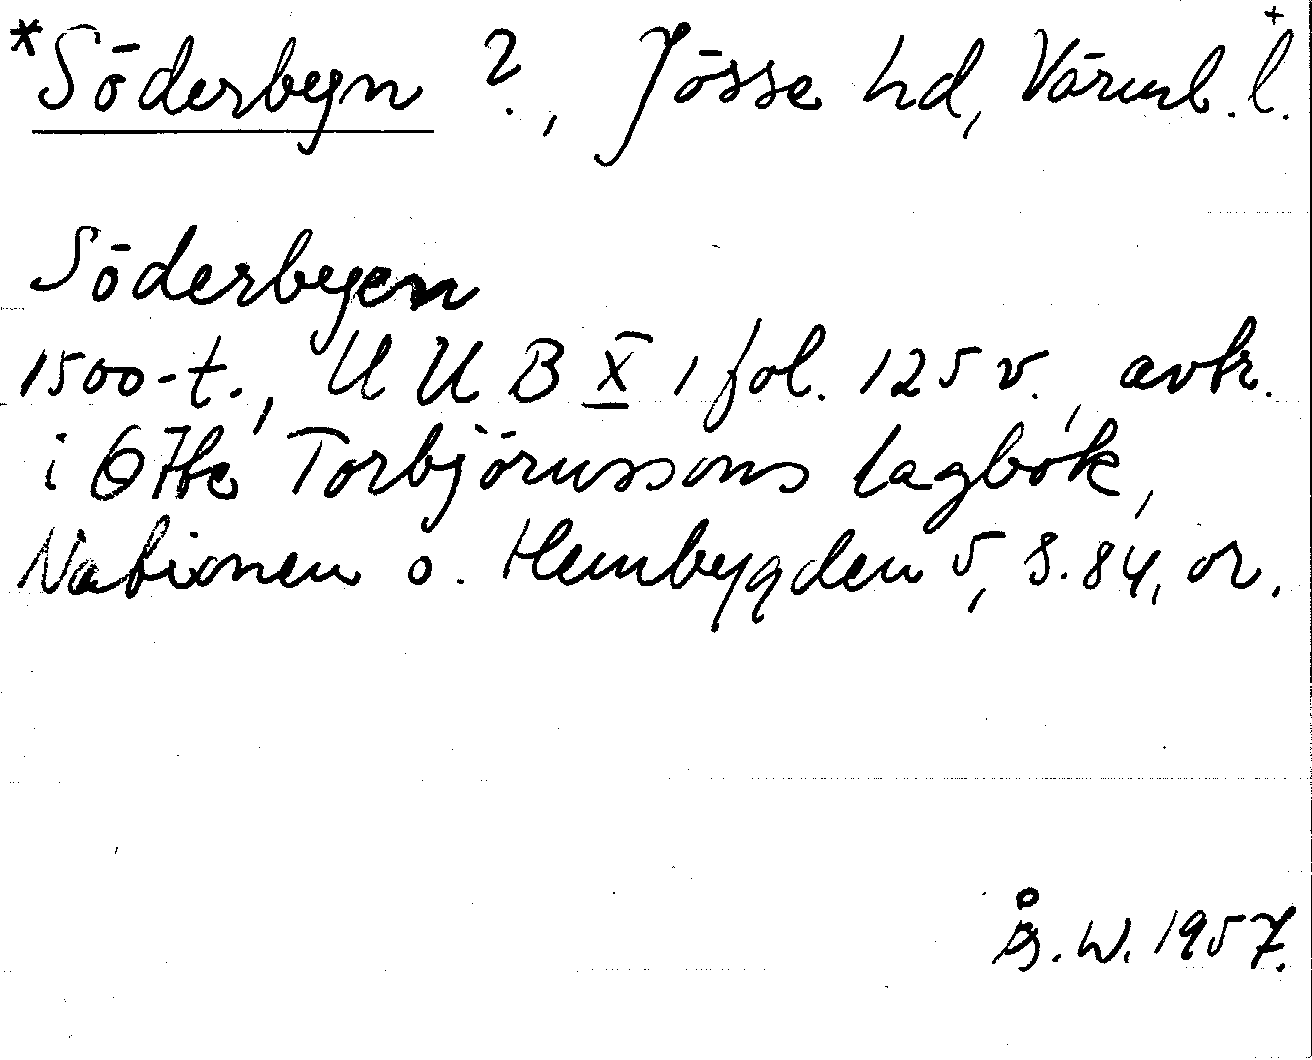 *Söderbyn ?, Jösse hd, Värml. l. +
Söderbyen
1500-t., UUB X 1 fol. 125 v., avtr.
i Otte Torbjörnssons lagbok,
Nationen o. Hembygden 5, s. 84, or.
Å.W. 1957.